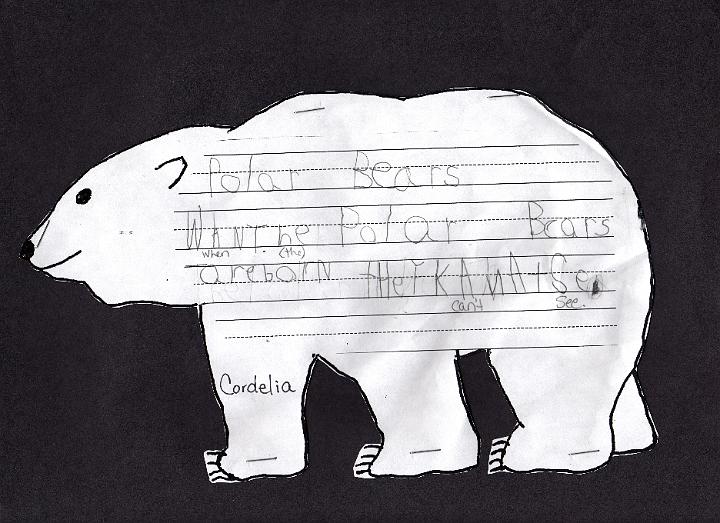 Polar Bears
WhANT the Polar Bears
when (the)
areborN tHeY KANAt See
can't See.
Cordelia